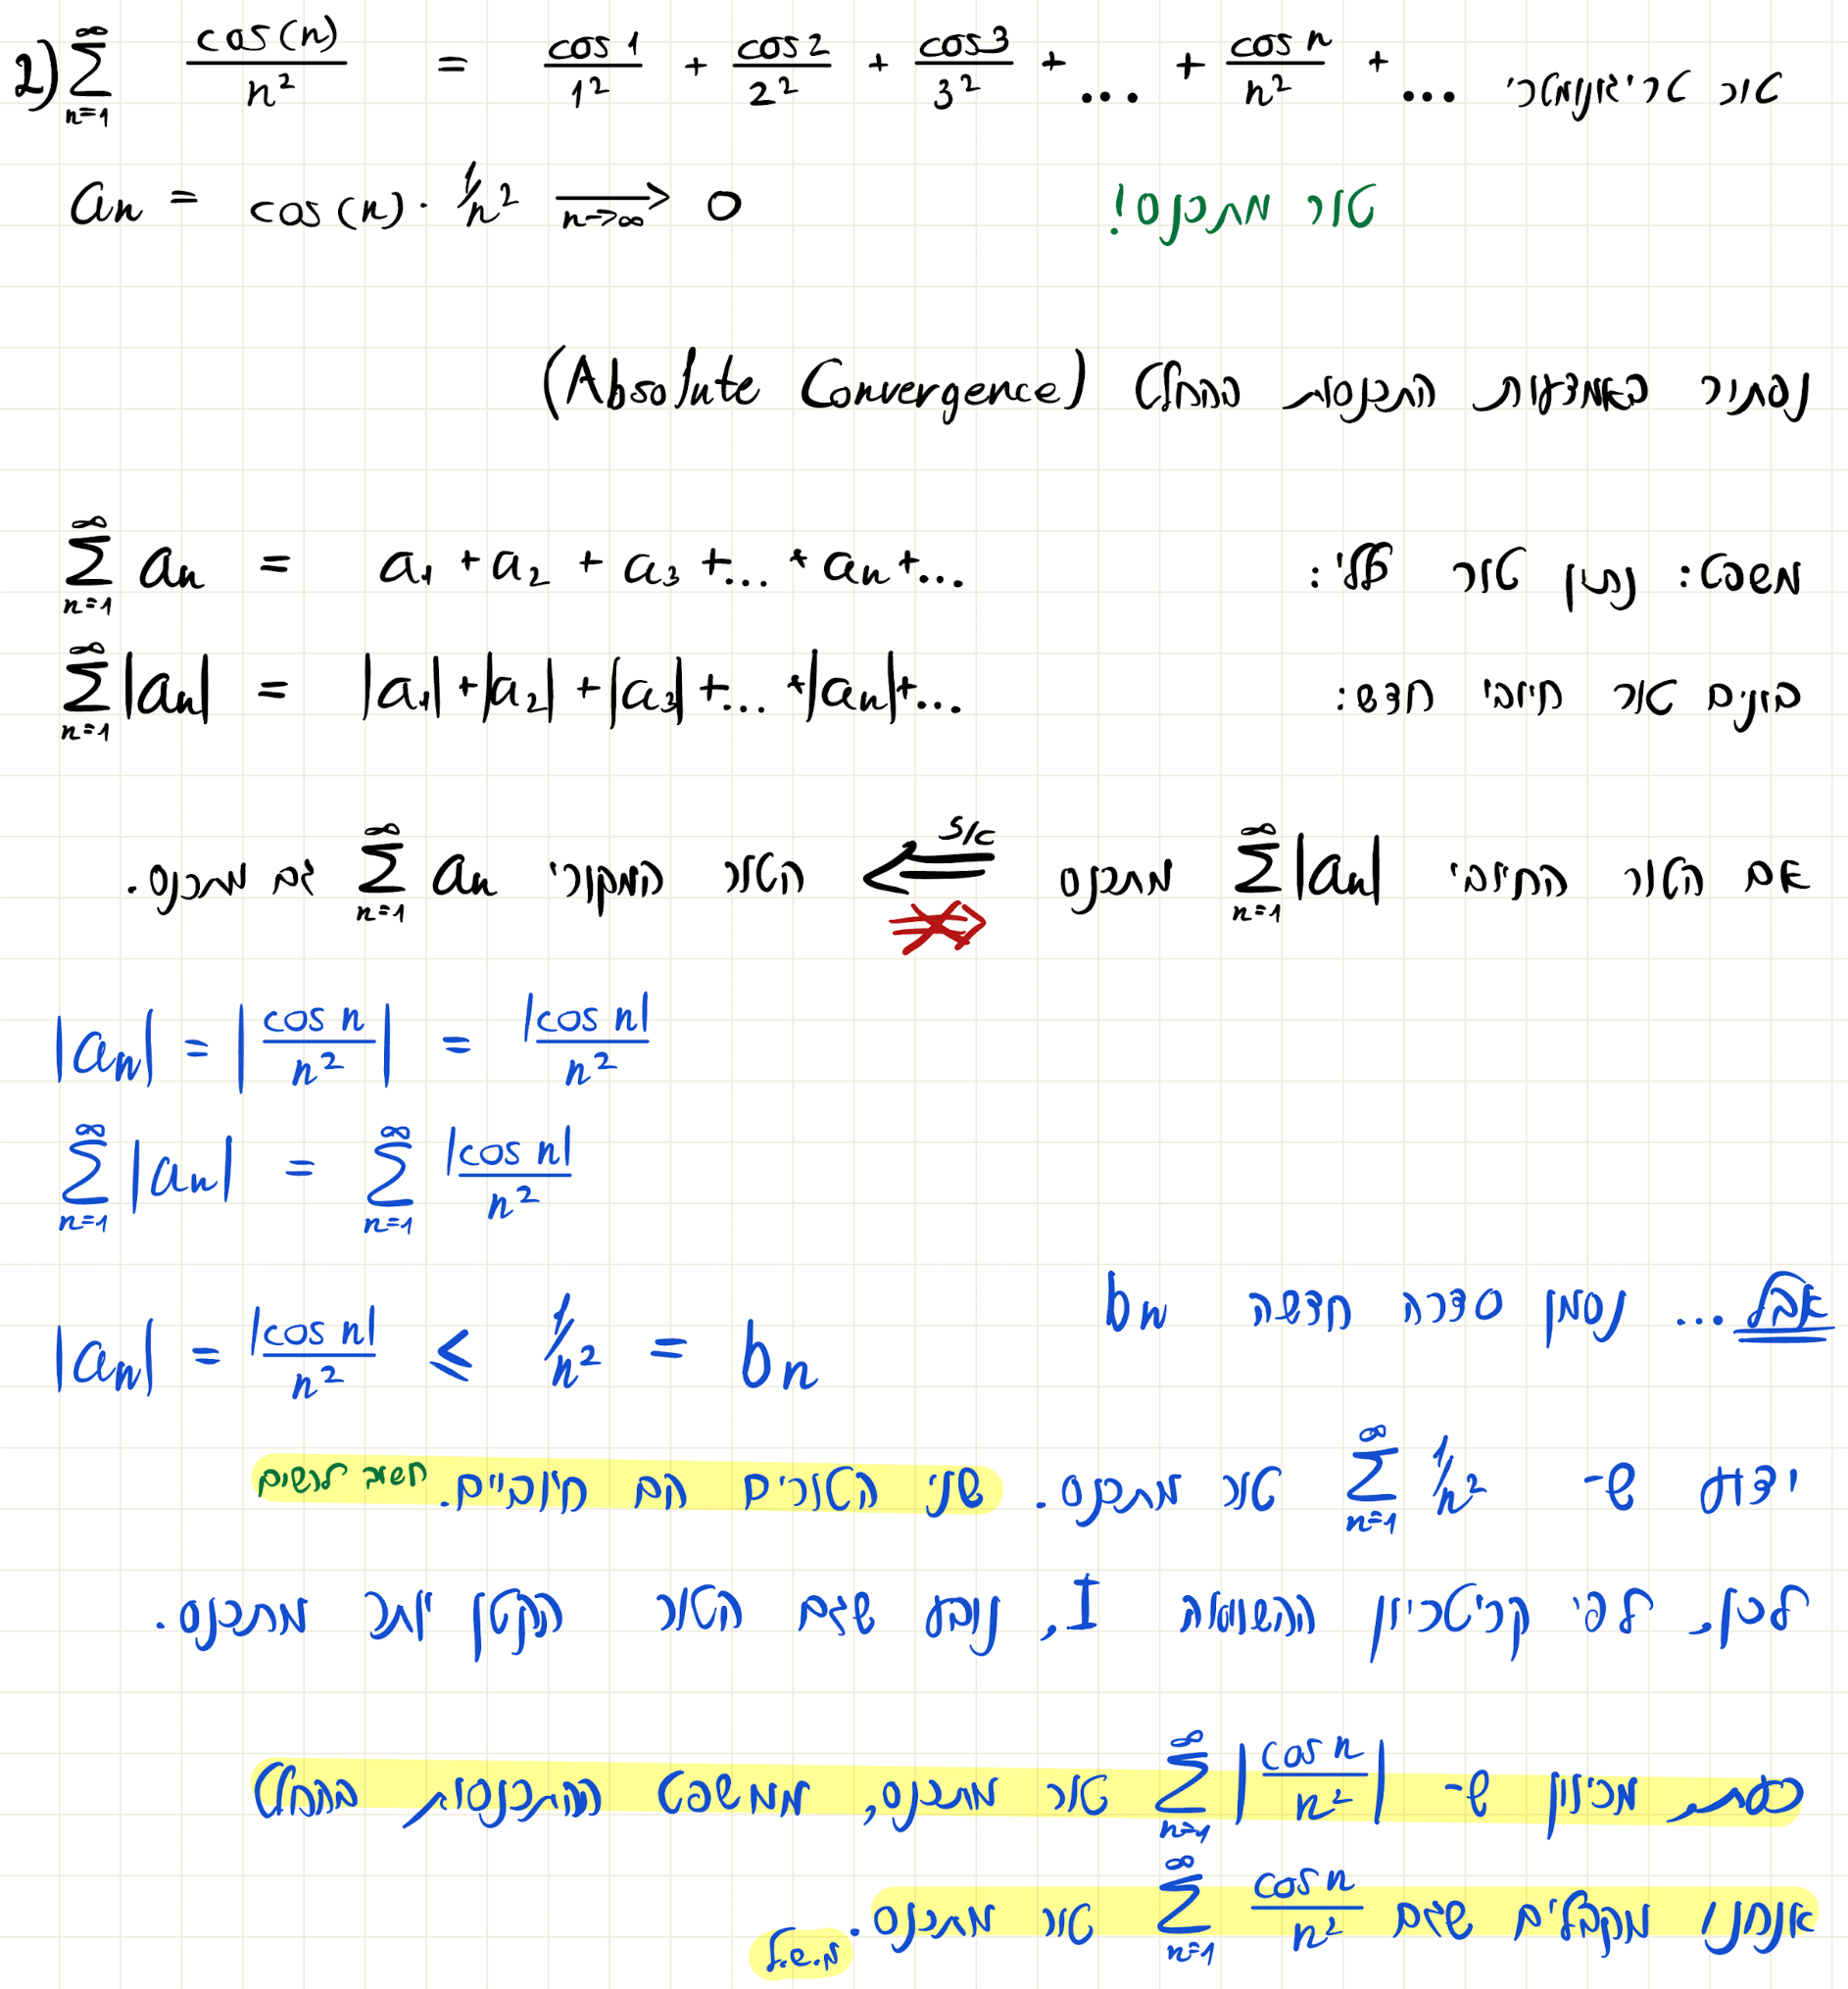 2) \sum_{n=1}^{\infty} \frac{cos(n)}{n^2} = \frac{cos 1}{1^2} + \frac{cos 2}{2^2} + \frac{cos 3}{3^2} + ... + \frac{cos n}{n^2} + ... טור טריגונומטרי
a_n = cos(n) · 1/n^2 \xrightarrow[n→∞]{} 0 טור מתכנס!
נפתור באמצעות התכנסות בהחלט (Absolute Convergence)
משפט: נתון טור כללי: \sum_{n=1}^{\infty} a_n = a_1 + a_2 + a_3 + ... + a_n + ...
בונים טור חיובי חדש: \sum_{n=1}^{\infty} |a_n| = |a_1| + |a_2| + |a_3| + ... + |a_n| + ...
אם הטור החיובי \sum_{n=1}^{\infty} |a_n| מתכנס ⟸ הטור המקורי \sum_{n=1}^{\infty} a_n גם מתכנס.
|a_n| = |\frac{cos n}{n^2}| = \frac{|cos n|}{n^2}
\sum_{n=1}^{\infty} |a_n| = \sum_{n=1}^{\infty} \frac{|cos n|}{n^2}
אבל... נסמן סדרה חדשה b_n
|a_n| = \frac{|cos n|}{n^2} ≤ 1/n^2 = b_n
ידוע ש- \sum_{n=1}^{\infty} 1/n^2 טור מתכנס. שני הטורים הם חיוביים. חשוב לרשום
לכן, לפי קריטריון ההשוואה I, נובע שגם הטור הקטן יותר מתכנס.
כעת, מכיוון ש- \sum_{n=1}^{\infty} |\frac{cos n}{n^2}| טור מתכנס, ממשפט ההתכנסות בהחלט
אנחנו מקבלים שגם \sum_{n=1}^{\infty} \frac{cos n}{n^2} טור מתכנס.
מ.ש.ל